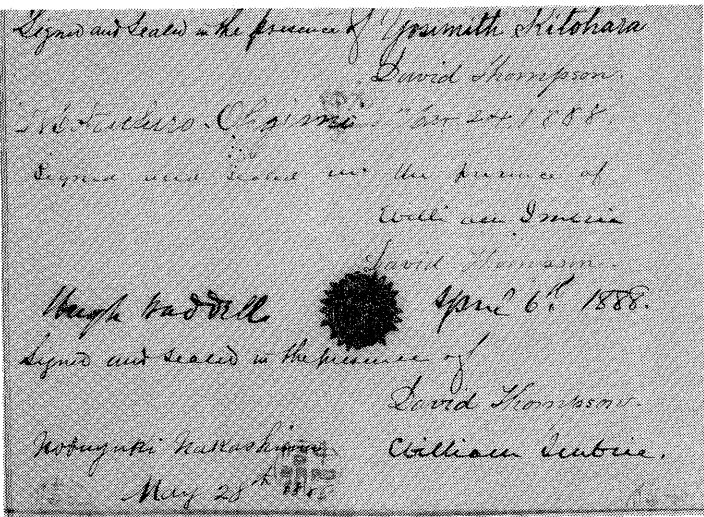 Signed and Sealed in the presence of Yosimith Kitohara
David Thompson.
24. 1888
Signed and sealed in the presence of
William Imbrie
David Thompson.
Hugh Waddell April 6th. 1888.
Signed and sealed in the presence of
David Thompson.
Nobuyuki Nakashima William Imbrie.
May 28th